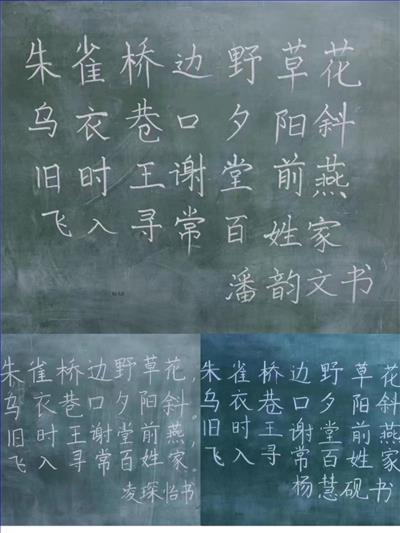 朱雀桥边野草花
乌衣巷口夕阳斜
旧时王谢堂前燕
飞入寻常百姓家
潘韵文书
朱雀桥边野草花,
乌衣巷口夕阳斜。
旧时王谢堂前燕,
飞入寻常百姓家。
凌琛怡书
朱雀桥边野草花
乌衣巷口夕阳斜
旧时王谢堂前燕
飞入寻常百姓家
杨慧砚书